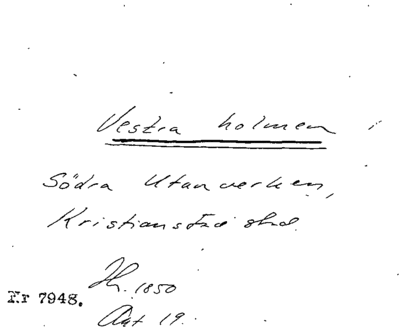 Vestra holmen i
Södra Utanverken,
Kristianstad stad.
Hr. 1850
Nr 7948.
Akt 19.